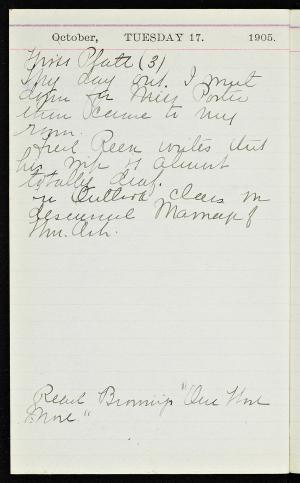 October, TUESDAY 17. 1905.
Miss Pfatt (3)
day out. I went
down for Miss Porter
then came to my
room.
Fred Reen writes that
his wife is almost
totally deaf.
in Outlook Class we
discussed Marriage of
Wm. Ash.
Read Browning's "One Word
More"